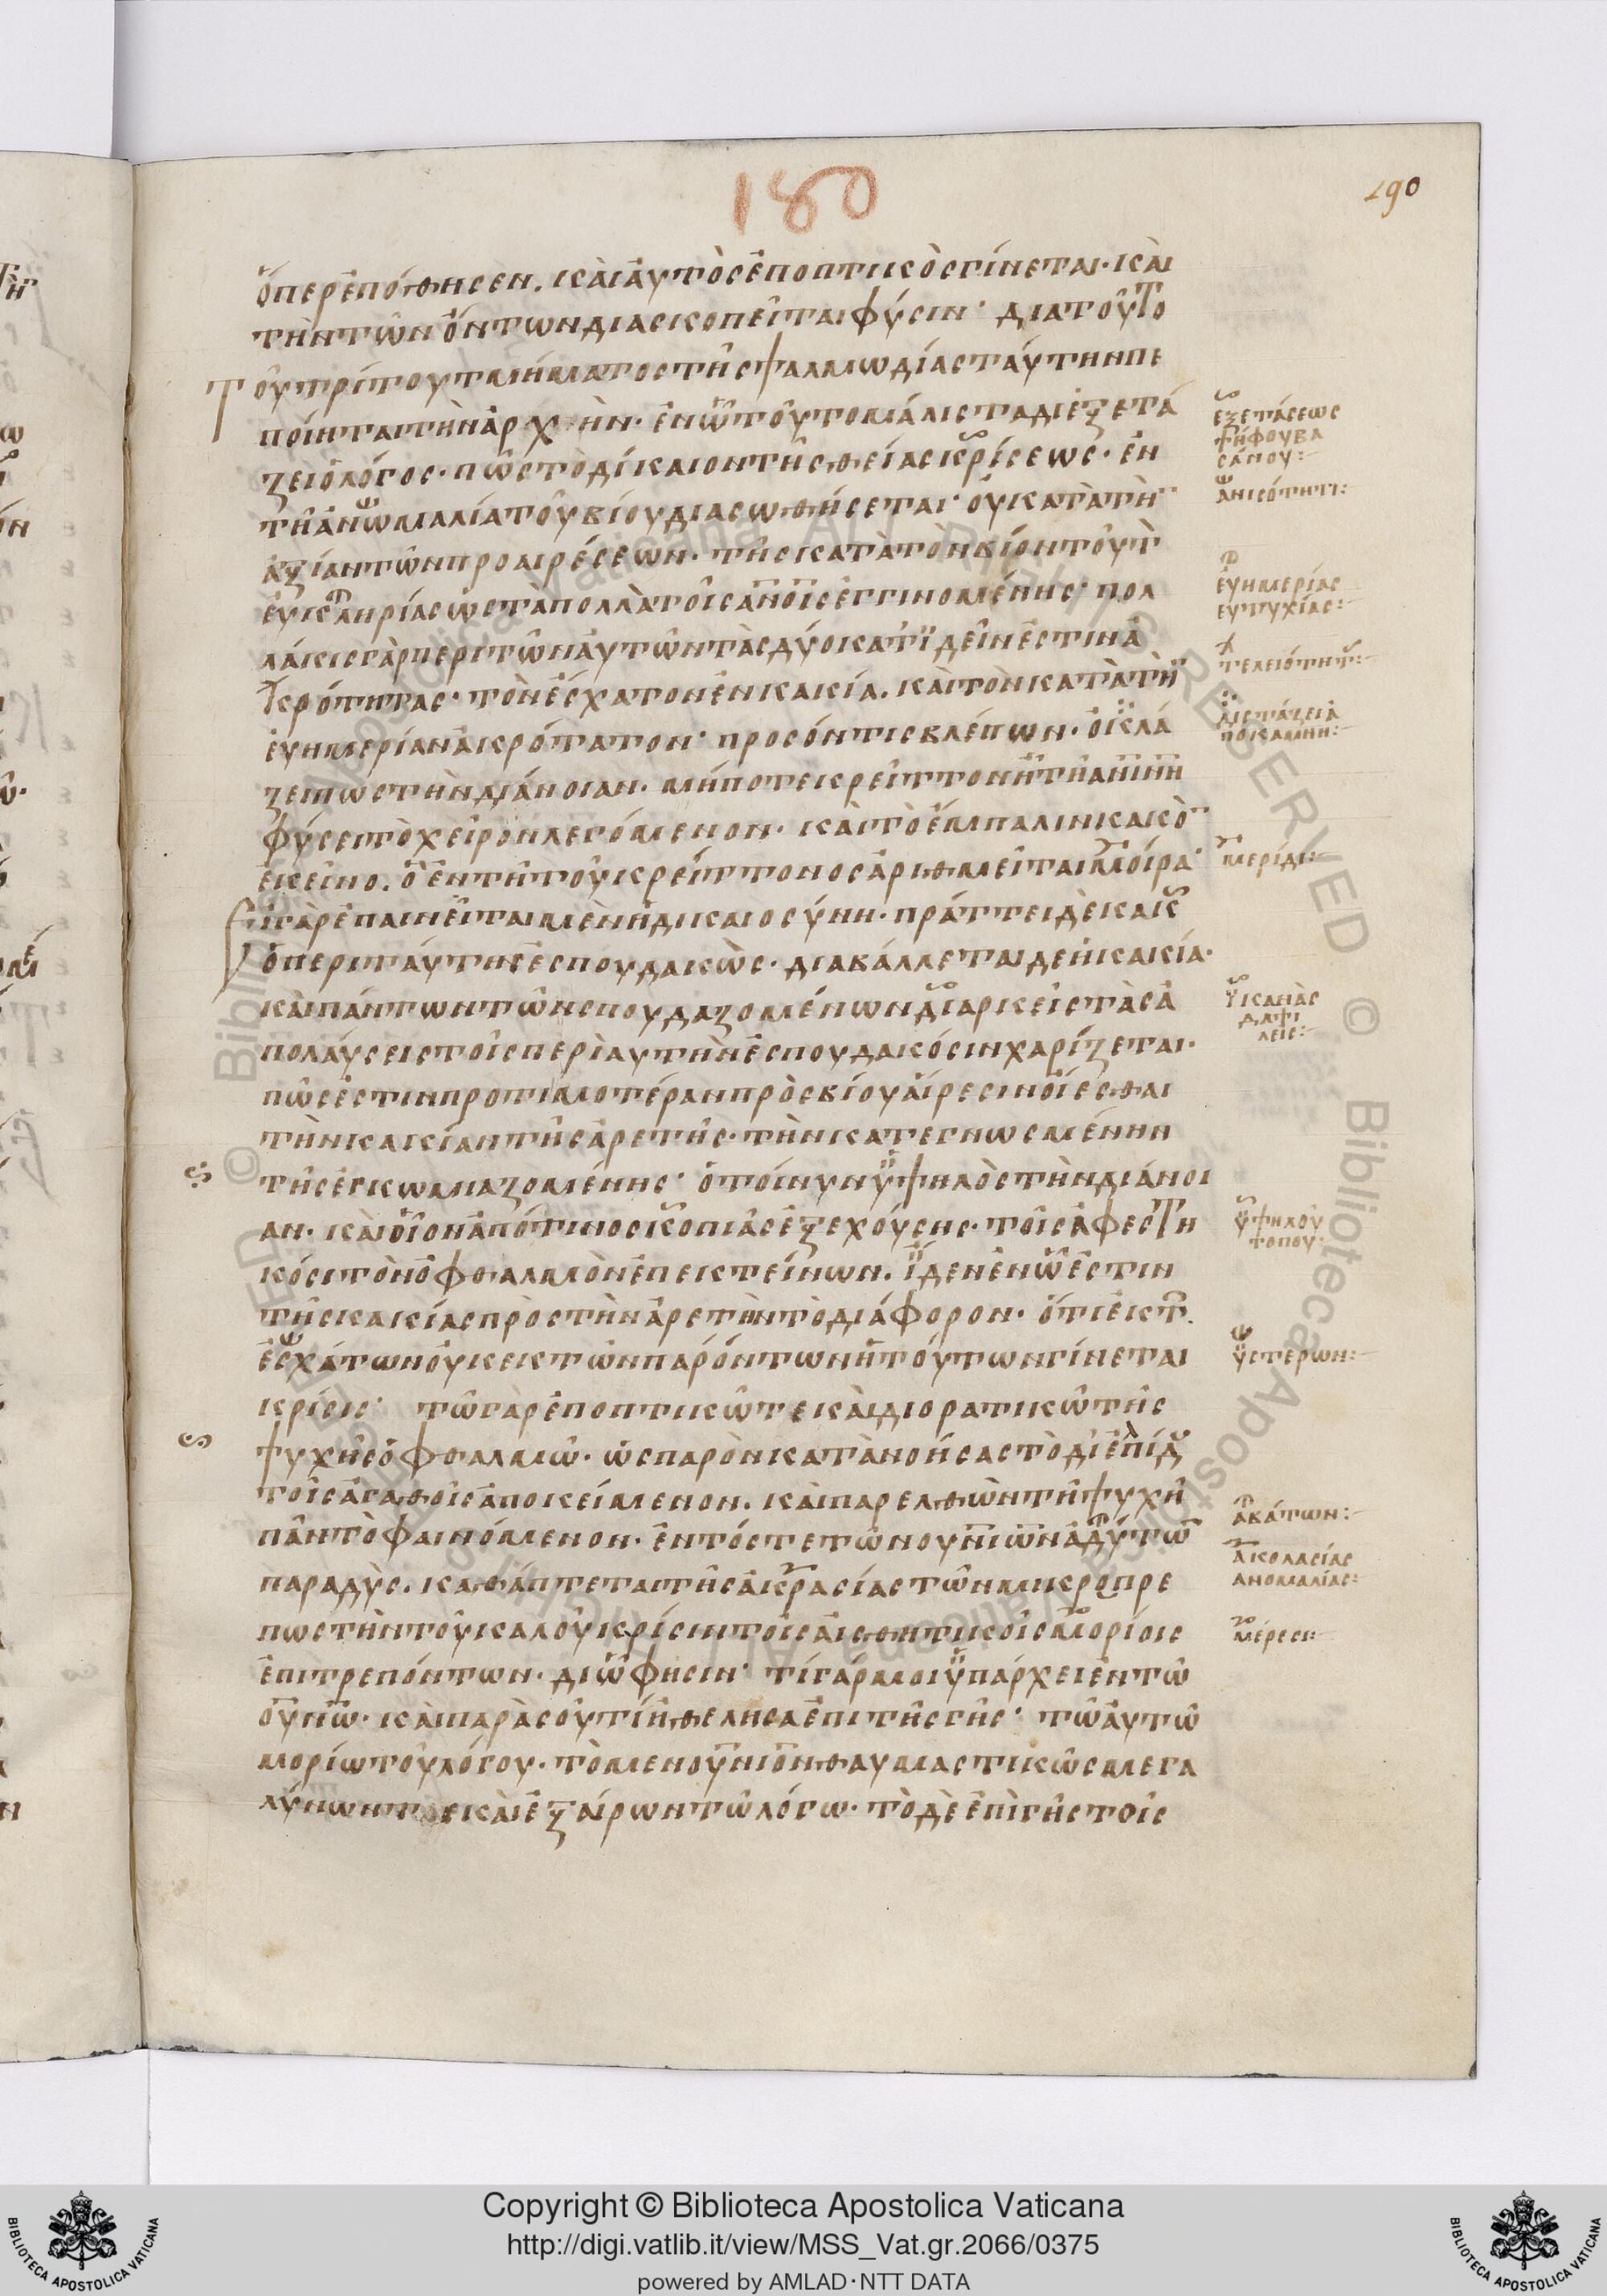 180
190
ὅπερ ἐπόθησεν. καὶ αὐτὸς ἐποπτικὸς γίνεται· καὶ
τὴν τῶν ὄντων διασκοπεῖται φύσιν· διατοῦτο
τοῦ τρίτου τμήματος τῆς ψαλμωδίας ταύτην πε
ποίηται τὴν ἀρχήν. ἐν ὧ τοῦτο μάλιστα διεξετά
ζει ὁ λόγος· πῶς τὸ δίκαιον τῆς θείας κρίσεως· ἐν
τῆ ἀνωμαλία τοῦ βίου διασωθήσεται· οὐ κατὰ τὴ̄
ἀξίαν τῶν προαιρέσεων· τῆς κατὰ τὸν βίον τοῦτ
εὐκληρίας ὡς τὰ πολλὰ τοῖς ἀνοῖς ἐγγινομένης· πολ
λάκις γὰρ περὶ τῶν αὐτῶν τὰς δύο κατϊδεῖν ἐστιν ἀ
κρότητας· τὸν ἔσχατον ἐν κακία. καὶ τὸν κατὰ τὴ̄
εὐημερίαν ἀκρότατον· προς ὅν τις βλέπων· ὀκλά
ζει πως τὴν διάνοιαν· μήποτε κρεῖττον ἦ τῆ ἀνίνη
φύσει τὸ χεῖρον λεγόμενον· καὶ τὸ ἔμπαλιν κακὸ̄
ἐκεῖνο. ὃ ἐν τῆ τοῦ κρείττονος ἀριθμεῖται μοίρα·
Εἰ γὰρ ἐπαινεῖται μὲν ἡ δικαιοσύνη· πράττει δὲ κακῶ
ὁ περὶ ταύτην ἐσπουδακὼς· διαβάλλεται δε ἡ κακία·
καὶ πάντων τῶν σπουδαζομένων διαρκεῖς τὰς ἀ
πολαύσεις τοῖς περὶ αὐτὴν ἐσπουδακόσιν χαρίζεται·
πῶς ἐστιν προτιμοτέραν πρὸς βίου αἵρεσιν οἴεσθαι
τὴν κακίαν τῆς ἀρετῆς· τὴν κατεγνωσμένην
τῆς ἐγκωμιαζομένης· ὁ τοίνυν ὑψηλὸς τὴν διάνοι
αν· καὶ οἷον ἀπό τινος σκοπιᾶς ἐξεχούσης· τοῖς ἀφεστη
κόσι τὸν ὀφθαλμὸν ἐπεκτείνων. ἴδεν ἐν ὧ ἐστιν
τῆς κακίας πρὸς τὴν ἀρετὴν τὸ διάφορον· ὅτι ἐκ τ̄
ἐσχάτων οὐκ εκ τῶν παρόντων ἡ τούτων γίνεται
κρίσις· τῶ γὰρ ἐποπτικῶ τε καὶ διορατικῶ τῆς
ψυχῆς ὀφθαλμῶ· ὡς παρὸν κατανοήσας τὸ δι ἐλπίδ
τοῖς ἀγαθοῖς ἀποκείμενον. καὶ παρελθὼν τῆ ψυχῆ
πᾶν τὸ φαινόμενον· ἐντός τε τῶν οὐνιων ἀδύτω̄
παραδὺς. καθάπτεται τῆς ἀκρασίας τῶν μικροπρε
πως τὴν τοῦ καλοῦ κρίσιν τοῖς αἰσθητικοῖς μορίοις
ἐπιτρεπόντων· διῶ φησιν· τί γάρ μοι ὑπάρχει ἐν τῶ
οὐνῶ· καὶ παρὰ σοῦ τί ἠθέλησα ἐπι τῆς γῆς· τῶ αὐτῶ
μορίω τοῦ λόγου· τὸ μεν οὐνιον θαυμαστικῶς μεγα
λύνων τε καὶ ἐξαίρων τῶ λόγω· τὸ δὲ ἐπὶ γῆς τοῖς
ἐξετάσεως
ψήφου βα
σάνου:
ἀνισότητι:
εὐημερίας
εὐτυχίας:
τελειότητ:
διστάζει ἀ
ποκάμνη:
μερίδι:
ἱκανὰς
δαψι
λεῖς:
ὑψηλοῦ
τόπου:
ὑστέρων:
ἀβάτων:
ἀκολασίας
ἀνομαλίας:
μέρεσι:
Copyright © Biblioteca Apostolica Vaticana
http://digi.vatlib.it/view/MSS_Vat.gr.2066/0375
powered by AMLAD·NTT DATA